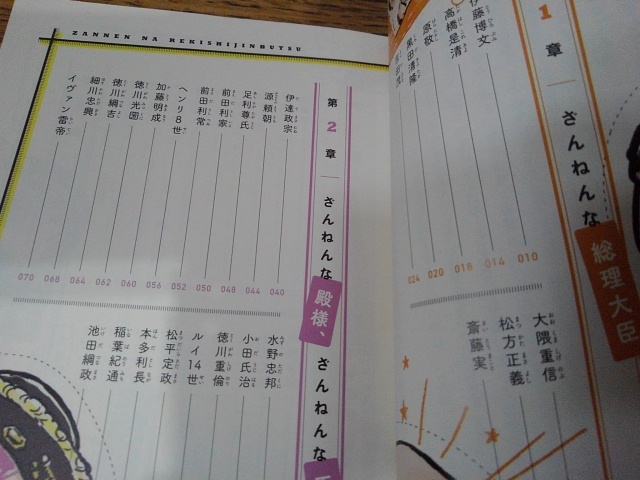 1
章
ざんねんな
総理大臣
伊藤博文
高橋是清
原敬
黒田清隆
010
014
016
020
024
大隈重信
松方正義
斎藤実
ZANNEN NA REKISHIJINBUTSU
第2章
ざんねんな
殿様、
ざんねんな
伊達政宗
源頼朝
足利尊氏
前田利家
前田利常
ヘンリ8世
加藤明成
徳川光圀
徳川綱吉
細川忠興
イヴァン雷帝
040
044
046
048
050
052
056
062
064
068
070
水野忠邦
小田氏治
徳川重倫
ルイ14世
松平定政
本多利長
稲葉紀通
池田綱政